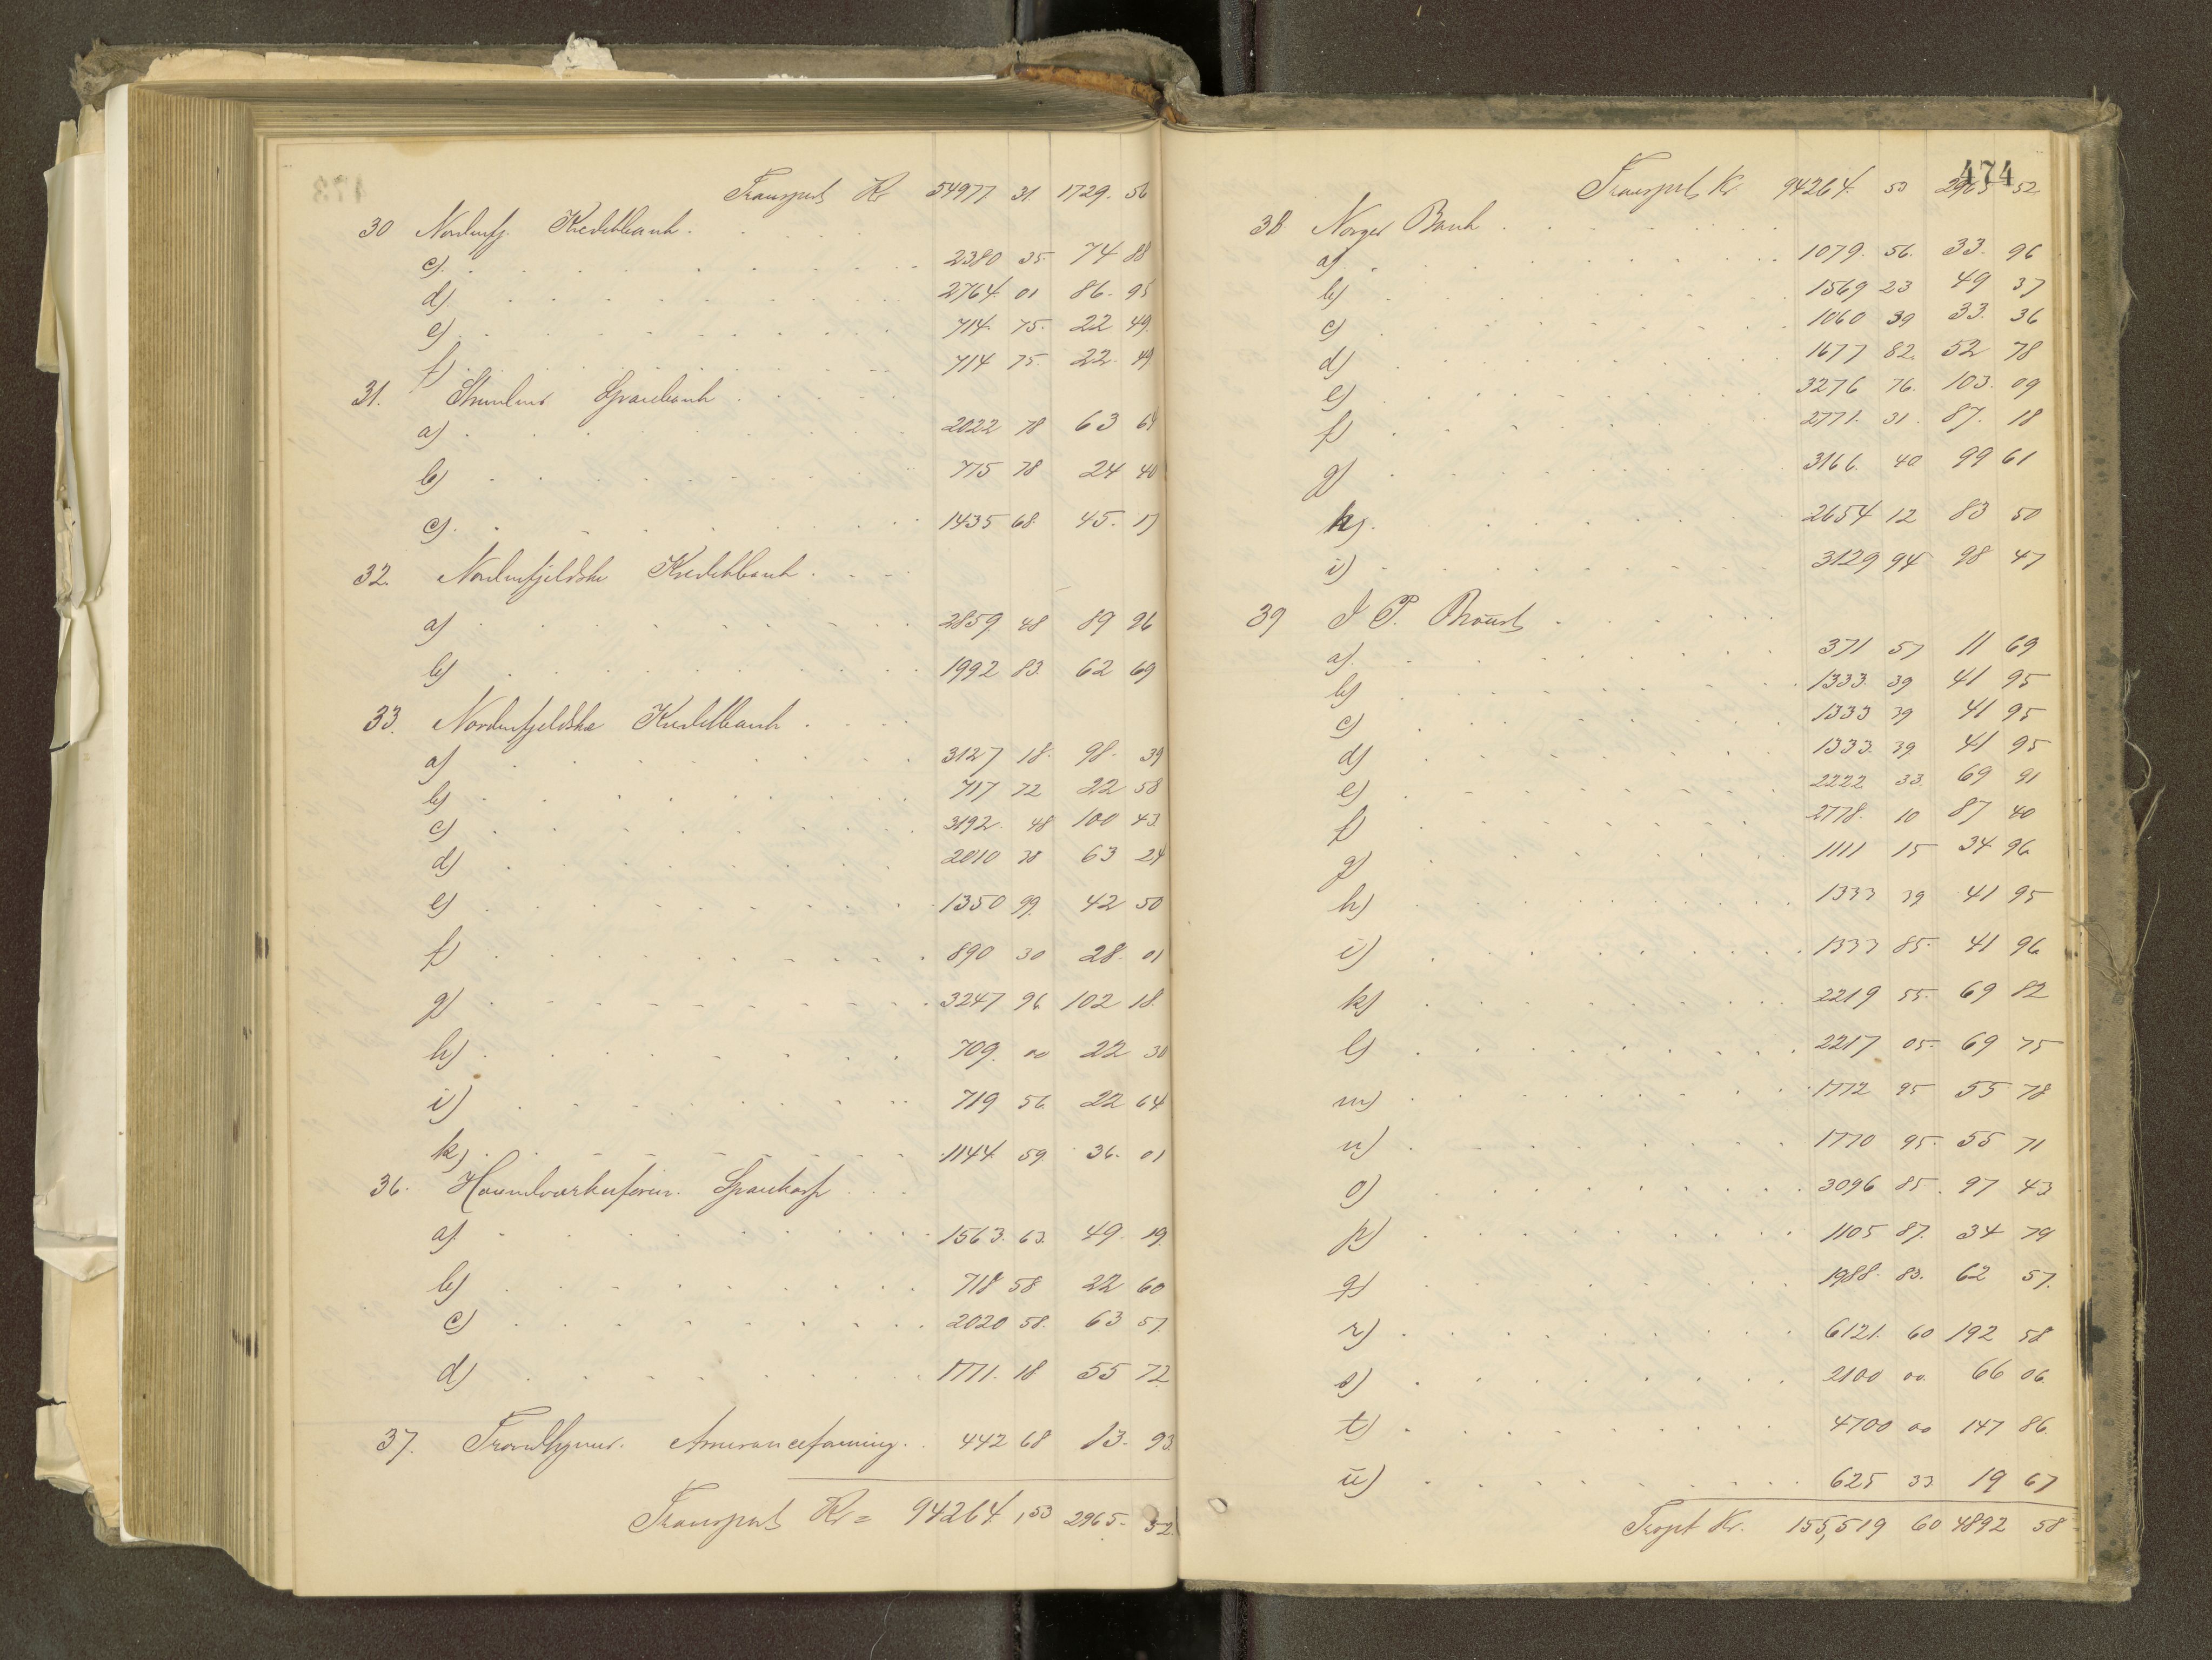 Transport Kr 54977 31. 1729. 56
30 Nordenfj. Kreditbank.
c) 2380 35. 74 88
d) 2764. 01 86. 95
e) 714. 75. 22 49.
f) 714 75. 22. 49
31. Sparebank
a) 2022 78 63 64
b) 775 78 24 40
c) 1435 68. 45. 17
32. Nordenfjeldske Kreditbank.
a) 2859. 48 89 96
b) 1992 83. 62 69
33. Nordenfjeldske Kreditbank.
a) 3127 18. 98. 39
b) 717 72 22 58
c) 3192. 48 100 43.
d) 2010 38 63 24
e) 1350 99. 42 50
f) 890 30 28. 01
g) 3247 96 102 18.
h) 709. 00 22 30
i) 719 56 22 64
k) 1144 59. 36. 01
36. Haandværkerforen. Sparekasse
a) 1563. 63. 49. 19.
b) 718 58 22 60
c) 2020 58. 63 57.
d) 1771. 18 55 72
37. Trondhjems. Assuranceforening. 442 68 13. 93.
Transport Kr = 94264,53 2965. 52
474
Transport Kr. 94264. 53 2965 52
38 Norges Bank
a) 1079. 56. 33. 96
b) 1569 23 49 37
c) 1060 39 33. 36
d) 1677 82. 52 78
e) 3276 76. 103. 09
f) 2771. 31. 87. 18
g) 3166. 40 99 61
h) 2654 12 83 50
i) 3129 94 98 47
39 I P.
a) 371 57 11 69
b) 1333. 39 41 95
c) 1333 39 41 95
d) 1333. 39. 41 95
e) 2222 33. 69 91
f) 2778. 10 87 40
g) 1111 15 34 96
h) 1333 39 41 95
i) 1333 85. 41 96
k) 2219 55. 69 82
l) 2217 05. 69 75
m) 1772 95 55 78
n) 1770 95. 55 71
o) 3096 85. 97 43
p) 1105 87. 34 79
q) 1988. 83. 62 57.
r) 6121. 60 192 58
s) 2100 00. 66 06
t) 4700 00 147 86
u) 625 33 19 67
Trspt Kr. 155,519 60 4892 58